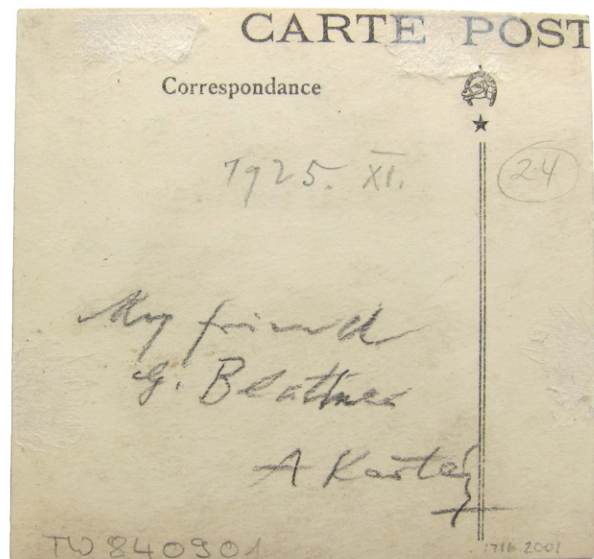 CARTE POST
Correspondance
1925. XI.
24
My friend
G. Blattner
A Kertész
TW 840901
1716.2001